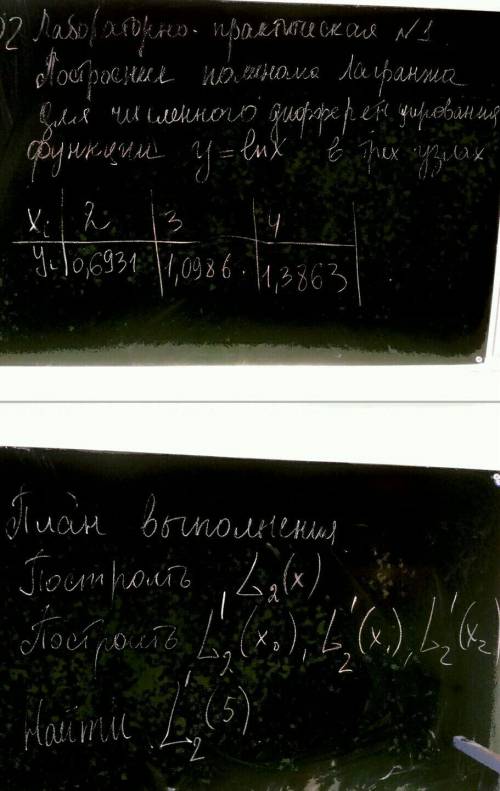 02 Лабораторно-практическая №1
Построения полинома Лагранжа
для численного дифференцирования
функции y = lnx в трех узлах
xᵢ 2 3 4
yᵢ 0,6931 1,0986 1,3863
План выполнения
Построить L₂(x)
Построить L₂'(x₀), L₂'(x₁), L₂'(x₂)
Найти L₂'(5)